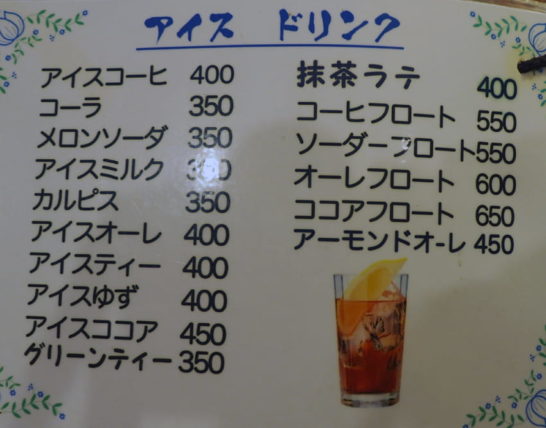 アイス ドリンク
アイスコーヒ 400
コーラ 350
メロンソーダ 350
アイスミルク
カルピス 350
アイスオーレ 400
アイスティー 400
アイスゆず 400
アイスココア 450
グリーンティー 350
抹茶ラテ 400
コーヒフロート 550
ソーダーフロート 550
オーレフロート 600
ココアフロート 650
アーモンドオ-レ 450